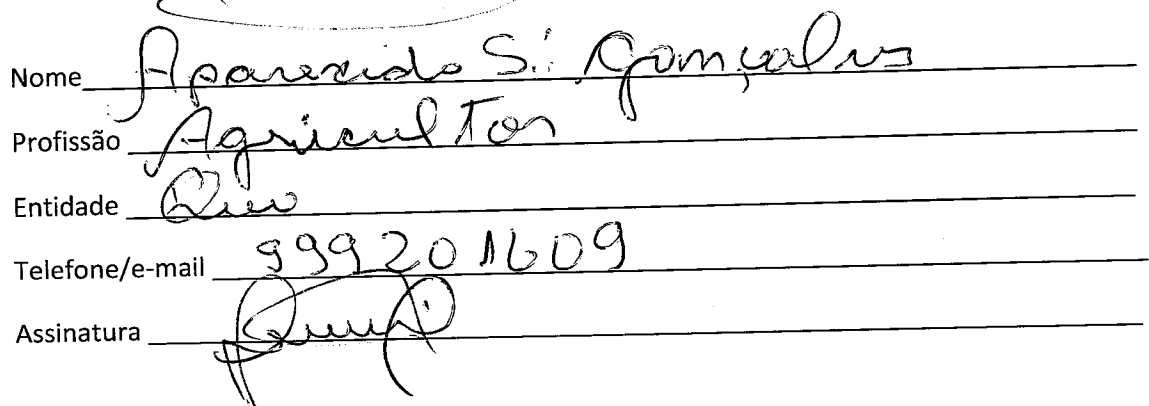 Nome Aparecido S. Gonçalves
Profissão Agricultor
Entidade
Telefone/e-mail 999201609
Assinatura